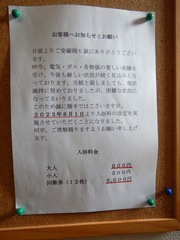 お客様へお知らせとお願い
日頃よりご愛顧賜り誠にありがとうござい
ます。
昨今、電気・ガス・各物価の著しい高騰を
受け、今後も厳しい状況が続く見込みとな
っております。当館と致しましても、現状
維持に努めて参りましたが、困難な状況に
なってまいりました。
このため誠に勝手ではございますが、
2023年9月1日より入浴料の改定を実
施させていただくことになりました。
何卒、ご理解賜りますようお願い申し上げ
ます。
入浴料金
大人 600円
小人 300円
回数券(12枚) 6,000円